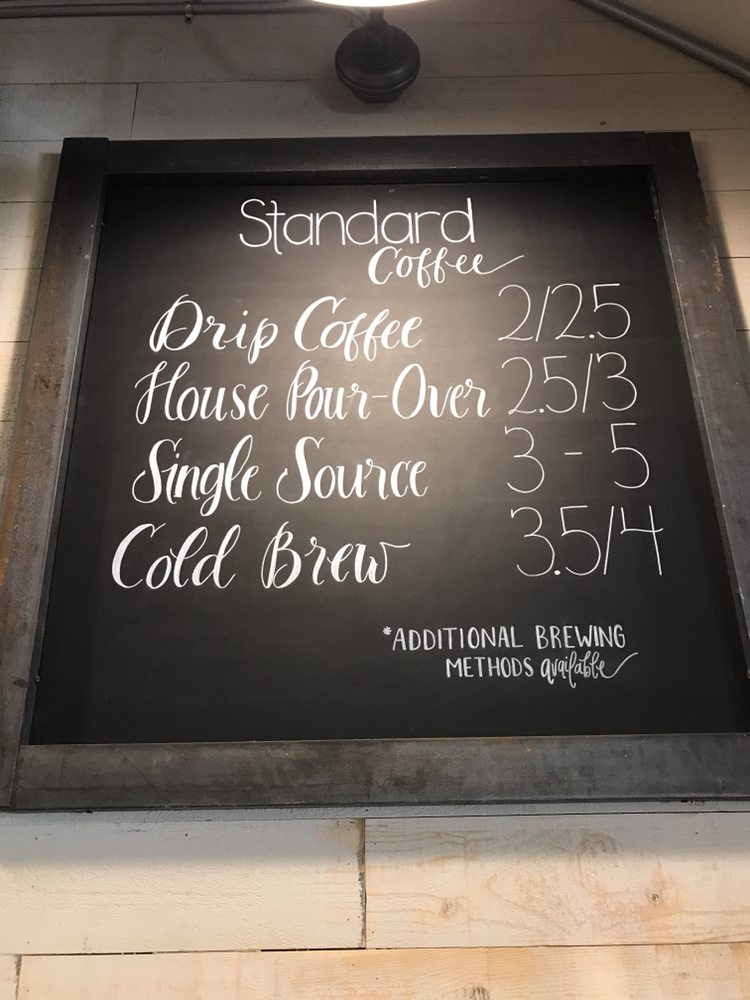 Standard
Coffee
Drip Coffee 2/2.5
House Pour-Over 2.5/3
Single Source 3 - 5
Cold Brew 3.5/4
*ADDITIONAL BREWING
METHODS available